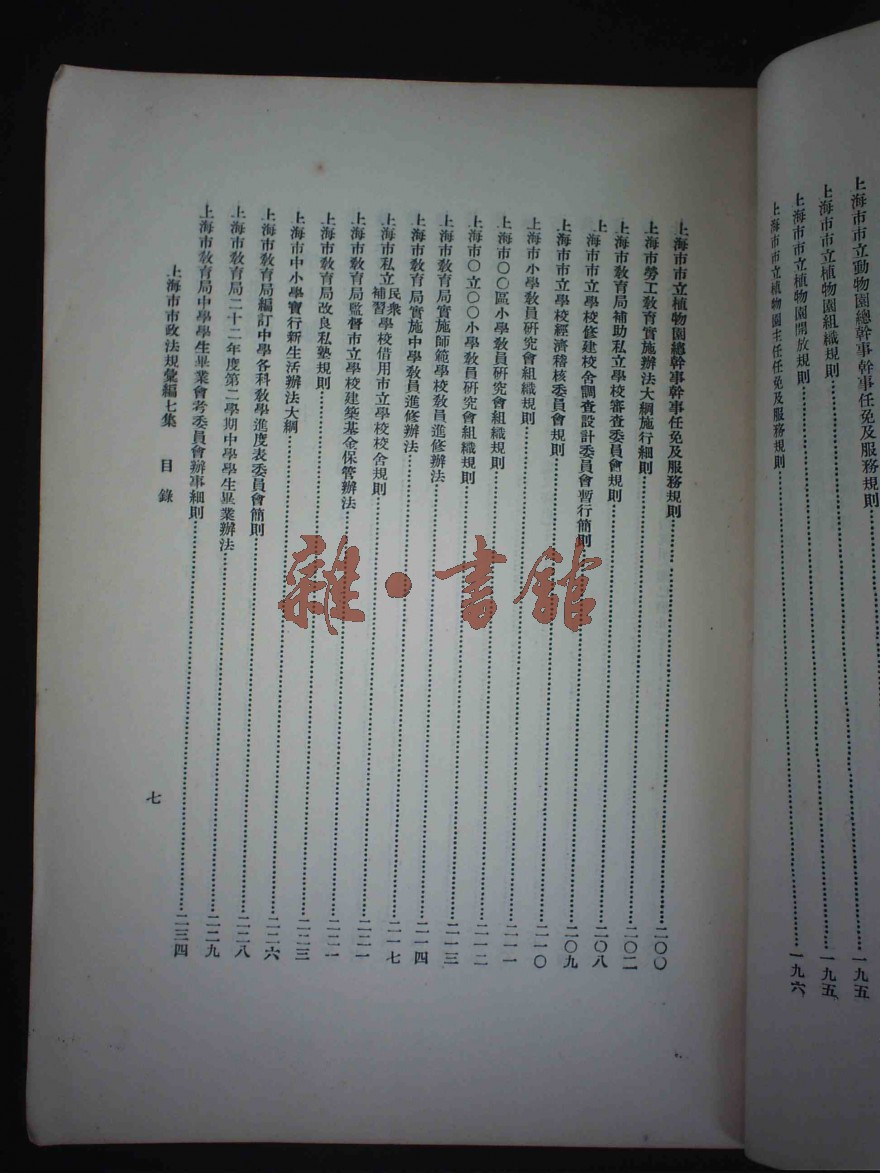 上海市市立動物園總幹事幹事任免及服務規則……一九五
上海市市立植物園組織規則……一九五
上海市市立植物園開放規則……一九六
上海市市立植物園主任任免及服務規則……
上海市市立植物園總幹事幹事任免及服務規則……二〇〇
上海市勞工教育實施辦法大綱施行細則……二〇二
上海市教育局補助私立學校審查委員會規則……二〇八
上海市市立學校修建校舍調查設計委員會暫行簡則……二〇九
上海市市立學校經濟稽核委員會規則……二一〇
上海市小學教員研究會組織規則……二一一
上海市〇〇區小學教員研究會組織規則……二一二
上海市〇立〇〇小學教員研究會組織規則……二一三
上海市教育局實施師範學校教員進修辦法……二一四
上海市教育局實施中學教員進修辦法……二一七
上海市私立民衆補習學校借用市立學校校舍規則……二二一
上海市教育局監督市立學校建築基金保管辦法……
上海市教育局改良私塾規則……二二三
上海市中小學實行新生活辦法大綱……二二六
上海市教育局編訂中學各科教學進度表委員會簡則……二二八
上海市教育局二十二年度第二學期中學學生畢業辦法……二二九
上海市教育局中學學生畢業會考委員會辦事細則……二三四
上海市市政法規彙編七集 目錄
七
雜·書館